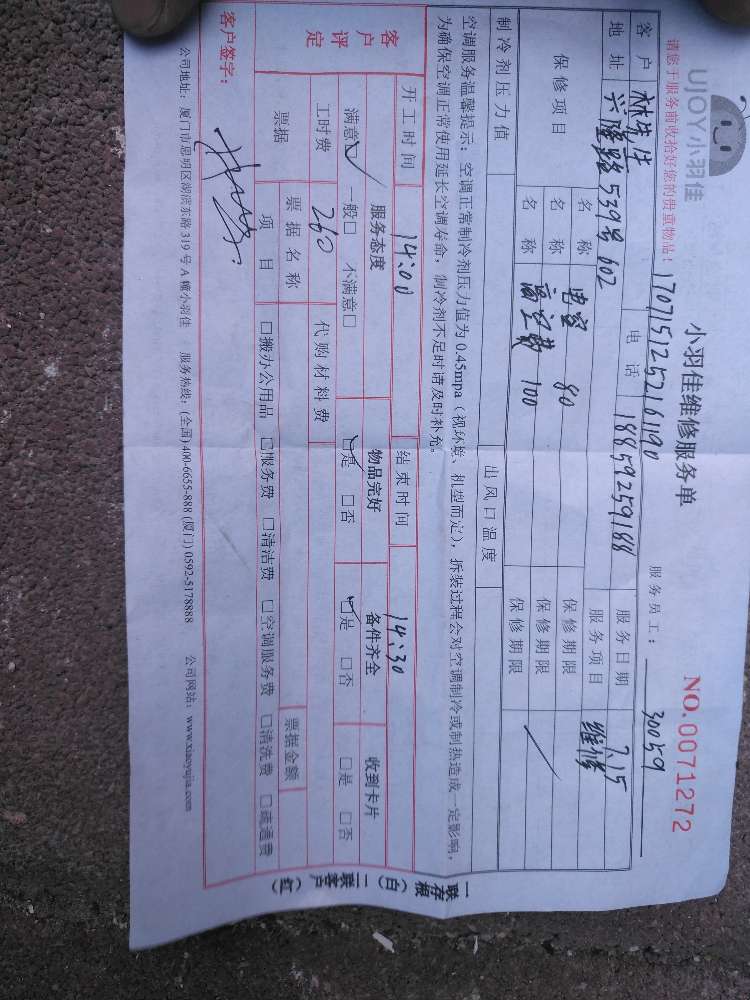 UJOY小羽佳
小羽佳维修服务单
NO.0071272
请您于服务前收拾好您的贵重物品!
1707151252161190
服务员工: 30059
客户 林先生 电话 18859259188 服务日期 7.15
地址 兴隆路539号602 服务项目 维修
保修项目 名称 电容 80 保修期限
名称 高空费 100 保修期限
名称 保修期限
制冷剂压力值 出风口温度
空调服务温馨提示:空调正常制冷剂压力值为0.45mpa(视环境、机型而定),拆装过程会对空调制冷或制热造成一定影响,
为确保空调正常使用延长空调寿命,制冷剂不足时请及时补充。
开工时间 14:00 结束时间 14:30
客户评定 服务态度 物品完好 备件齐全 收到卡片
满意☑ 一般□ 不满意□ ☑是 □否 ☑是 □否 □是 □否
工时费 260 代购材料费
票据 票据名称 票据金额
项目 □搬办公用品 □服务费 □清洁费 □空调服务费 □清洗费 □疏通费
客户签字:
公司地址:厦门市思明区湖滨东路319号A幢小羽佳 服务热线:(全国)400-6655-888 (厦门) 0592-5178888 公司网站:www.xiaoyujia.com
一联存根(白) 二联客户(红)